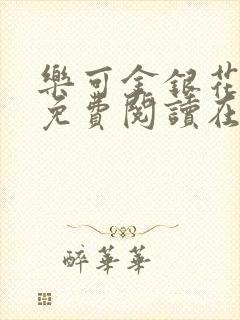 樂可金銀花
免費閱讀在
醉華華